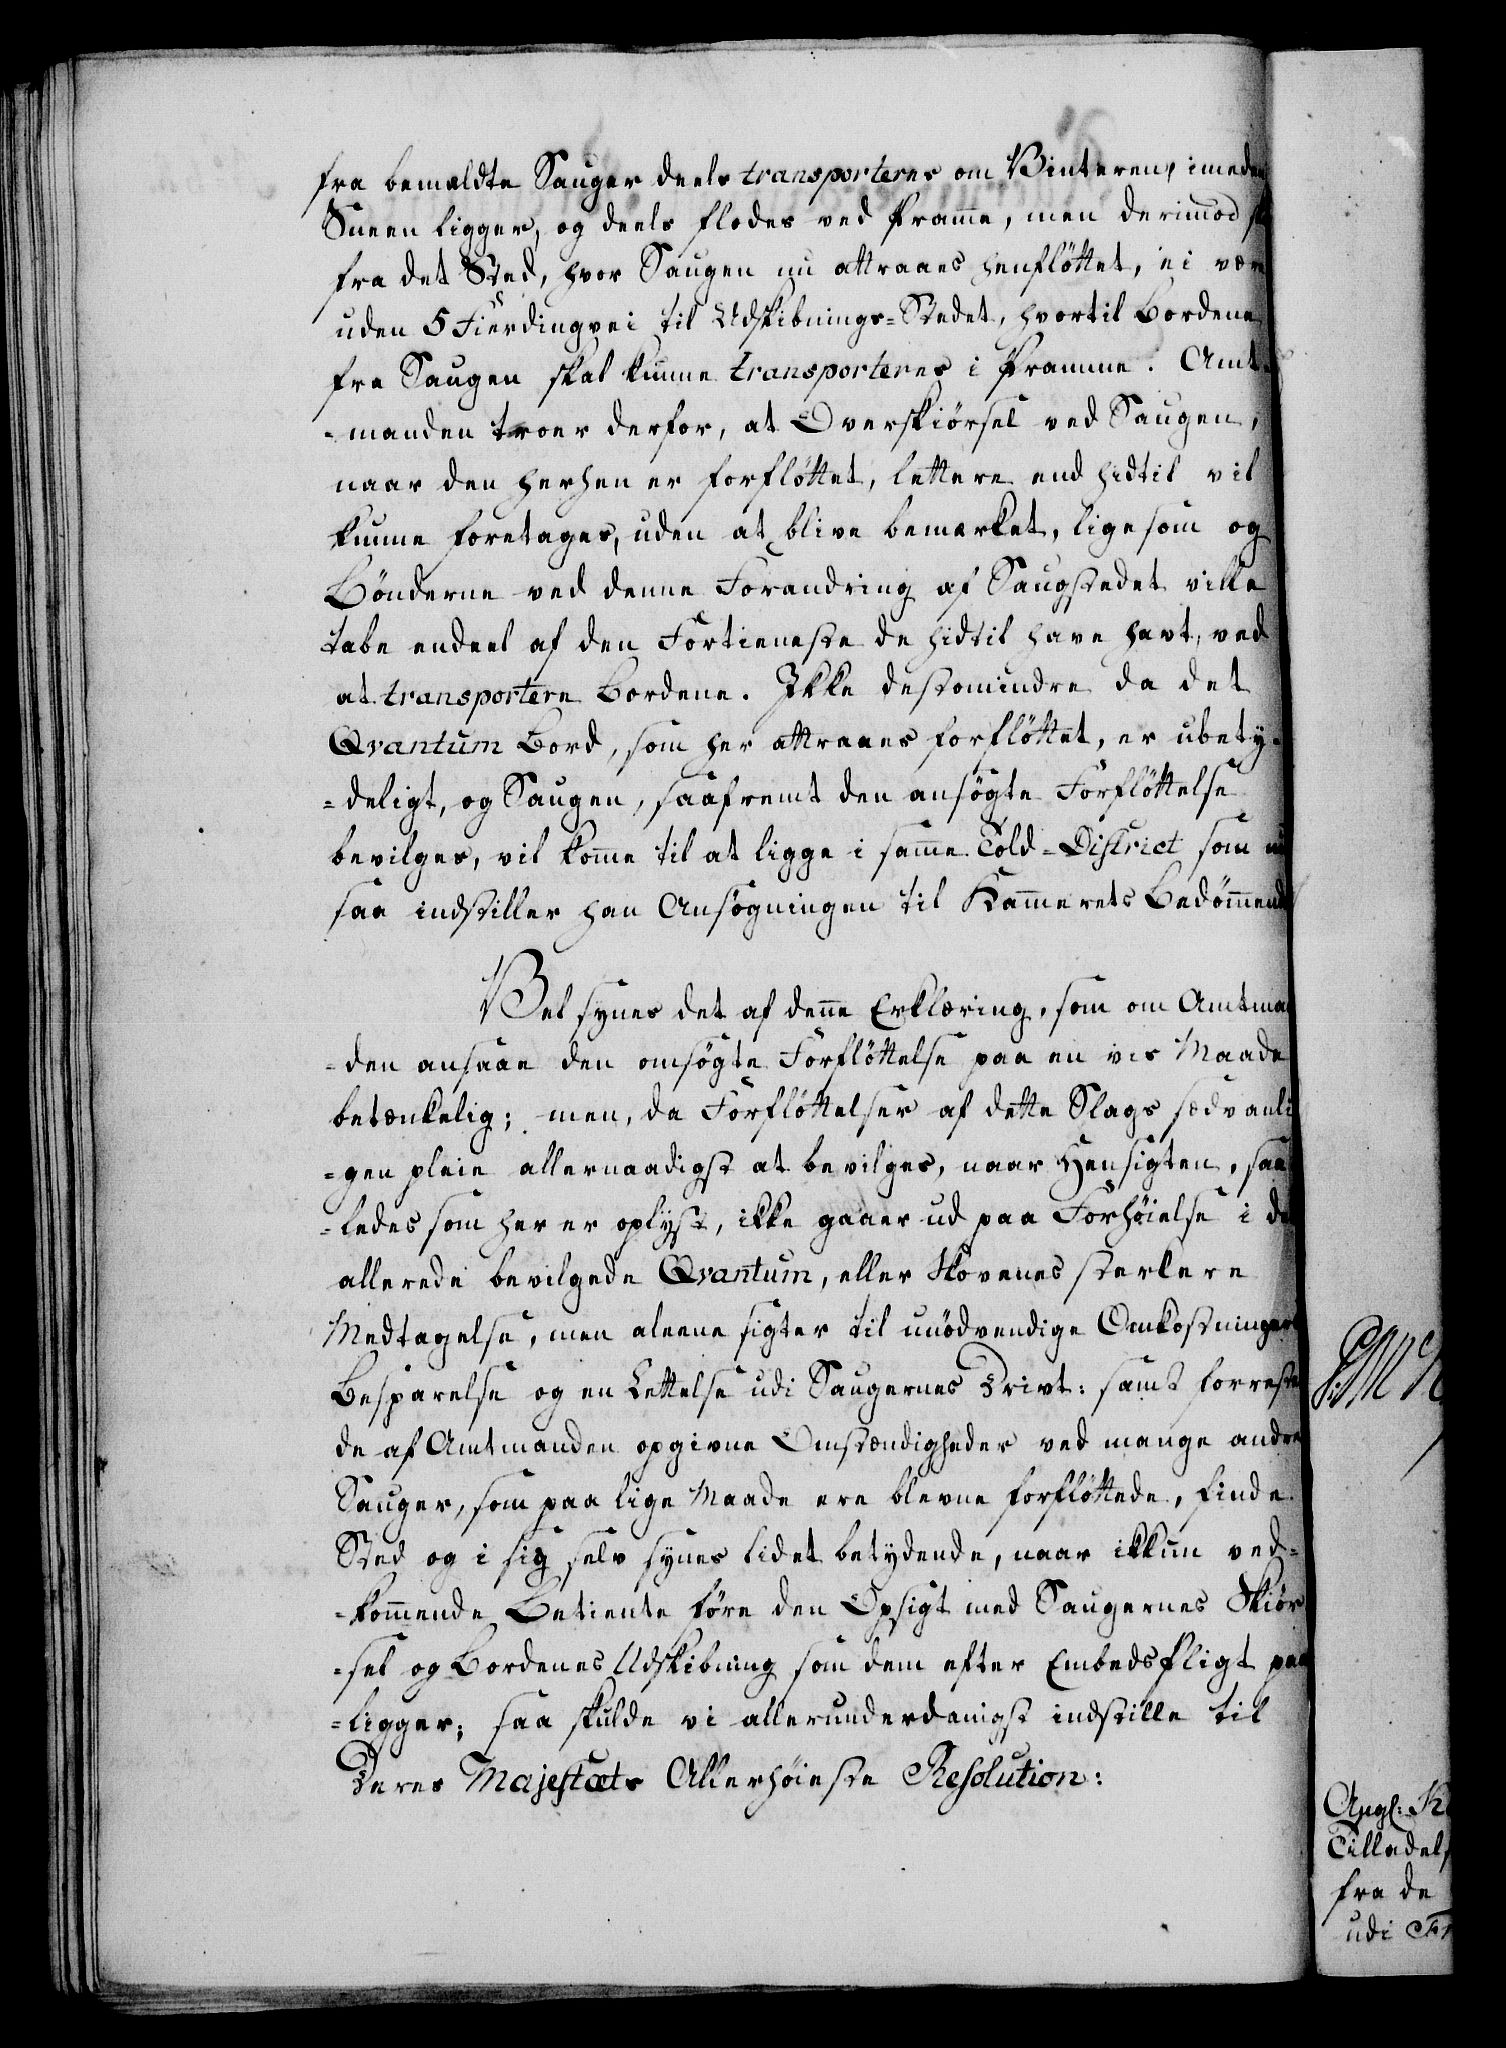 fra bemældte Sauger deels transporteres om Vinteren, imeden
Sneen ligger, og deels flodes ved Pramme, men derimod
fra det Sted, hvor Saugen nu attraaes henfløttet, ei være
uden 5 Fierdingvei til Udskibnings-Stedet, hvortil Bordene
fra Saugen skal kunne transporteres i Pramme. Amt-
-manden troer derfor, at Overskiørsel ved Saugen,
naar den herhen er forfløttet, lettere end hidtil vil
kunne foretages, uden at blive bemærket, ligesom og
Bønderne ved denne Forandring af Saugstedet ville
tabe endeel af den Fortieneste de hidtil have havt, ved
at transportere Bordene. Ikke destomindre da det
Qvantum Bord, som her attraaes forfløttet, er ubety-
-deligt, og Saugen, saafremt den ansøgte Forfløttelse
bevilges, vil komme til at ligge i samme Told-District som nu
saa indstiller han Ansøgningen til Kammerets Bedømmende
Vel synes det af denne Erklæring, som om Amtman
-den ansaae den omsøgte Forfløttelse paa en vis Maade
betænkelig; men, da Forfløttelser af dette Slags sædvanli
-gen pleie allernaadigst at bevilges, naar Hensigten, saa
-ledes som her er oplyst, ikke gaaer ud paa Forhøielse i det
allerede bevilgede Qvantum, eller Skovenes sterkere
Medtagelse, men aleene sigter til unødvendige Omkostningers
Besparelse og en Lettelse udi Saugernes Drivt: samt forreste
de af Amtmanden opgivne Omstændigheder ved mange andre
Sauger, som paa lige Maade ere blevne forfløttede, finde
Sted og i sig selv synes lidet betydende, naar ikkun ved-
-kommende Betiente føre den Opsigt med Saugernes Skiør
-sel og Bordenes Udskibning som dem efter Embedspligt paa
-ligger; saa skulde vi allerunderdanigst indstille til
Deres Majestæts Allerhøieste Resolution:
Angl: K
Tilladels
fra de
udi